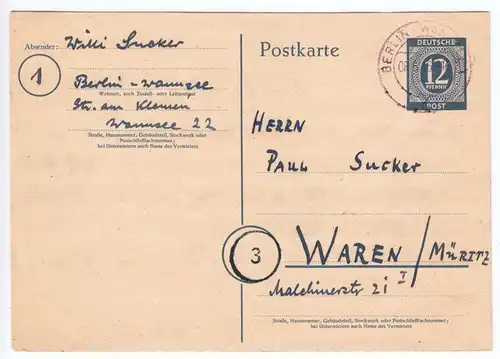 Absender: Willi Sucker
1
Berlin-Wannsee
Wohnort, auch Zustell- oder Leitpostamt
Str. am Kleinen
Wannsee 22
Straße, Hausnummer, Gebäudeteil, Stockwerk oder
Postschließfachnummer;
bei Untermietern auch Name des Vermieters
Postkarte
BERLIN
DEUTSCHE
12
PFENNIG
POST
HERRN
PAUL SUCKER
3
WAREN / MÜRITZ
Malchinerstr 21 I
Straße, Hausnummer, Gebäudeteil, Stockwerk oder Postschließfachnummer;
bei Untermietern auch Name des Vermieters